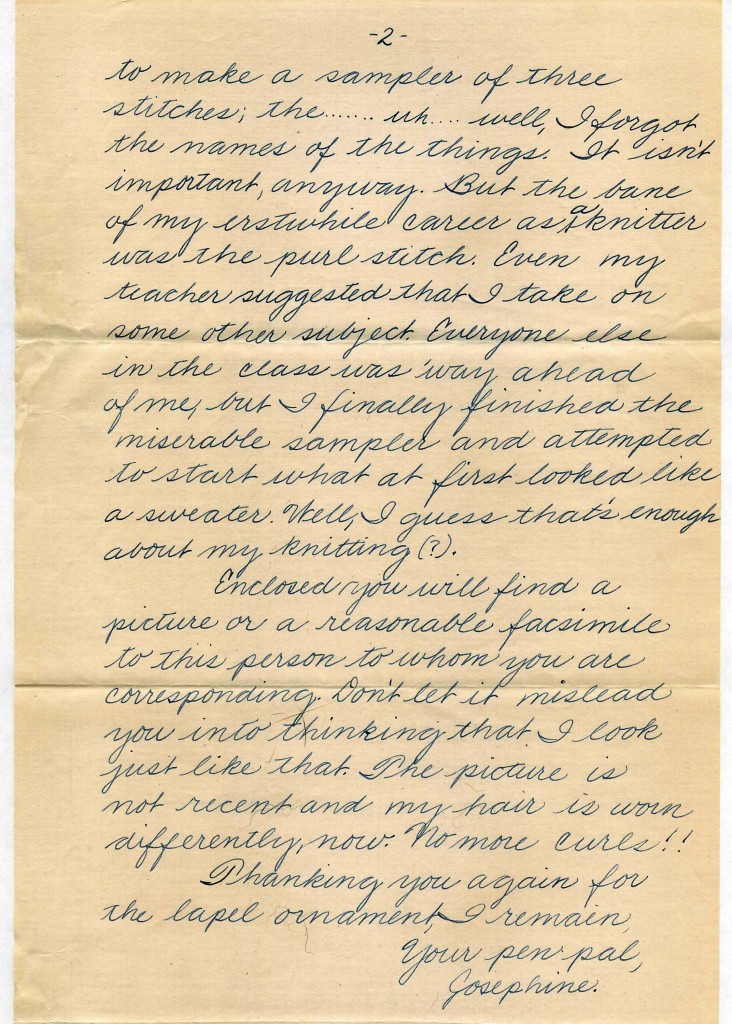 -2-
to make a sampler of three
stitches; the....... uh.... well, I forgot
the names of the things. It isn't
important, anyway. But the bane
of my erstwhile career as a knitter
was the purl stitch. Even my
teacher suggested that I take on
some other subject. Everyone else
in the class was 'way ahead
of me, but I finally finished the
miserable sampler and attempted
to start what at first looked like
a sweater. Well, I guess that's enough
about my knitting (?).
Enclosed you will find a
picture or a reasonable facsimile
to this person to whom you are
corresponding. Don't let it mislead
you into thinking that I look
just like that. The picture is
not recent and my hair is worn
differently, now. No more curls!!
Thanking you again for
the lapel ornament, I remain,
Your pen-pal,
Josephine.